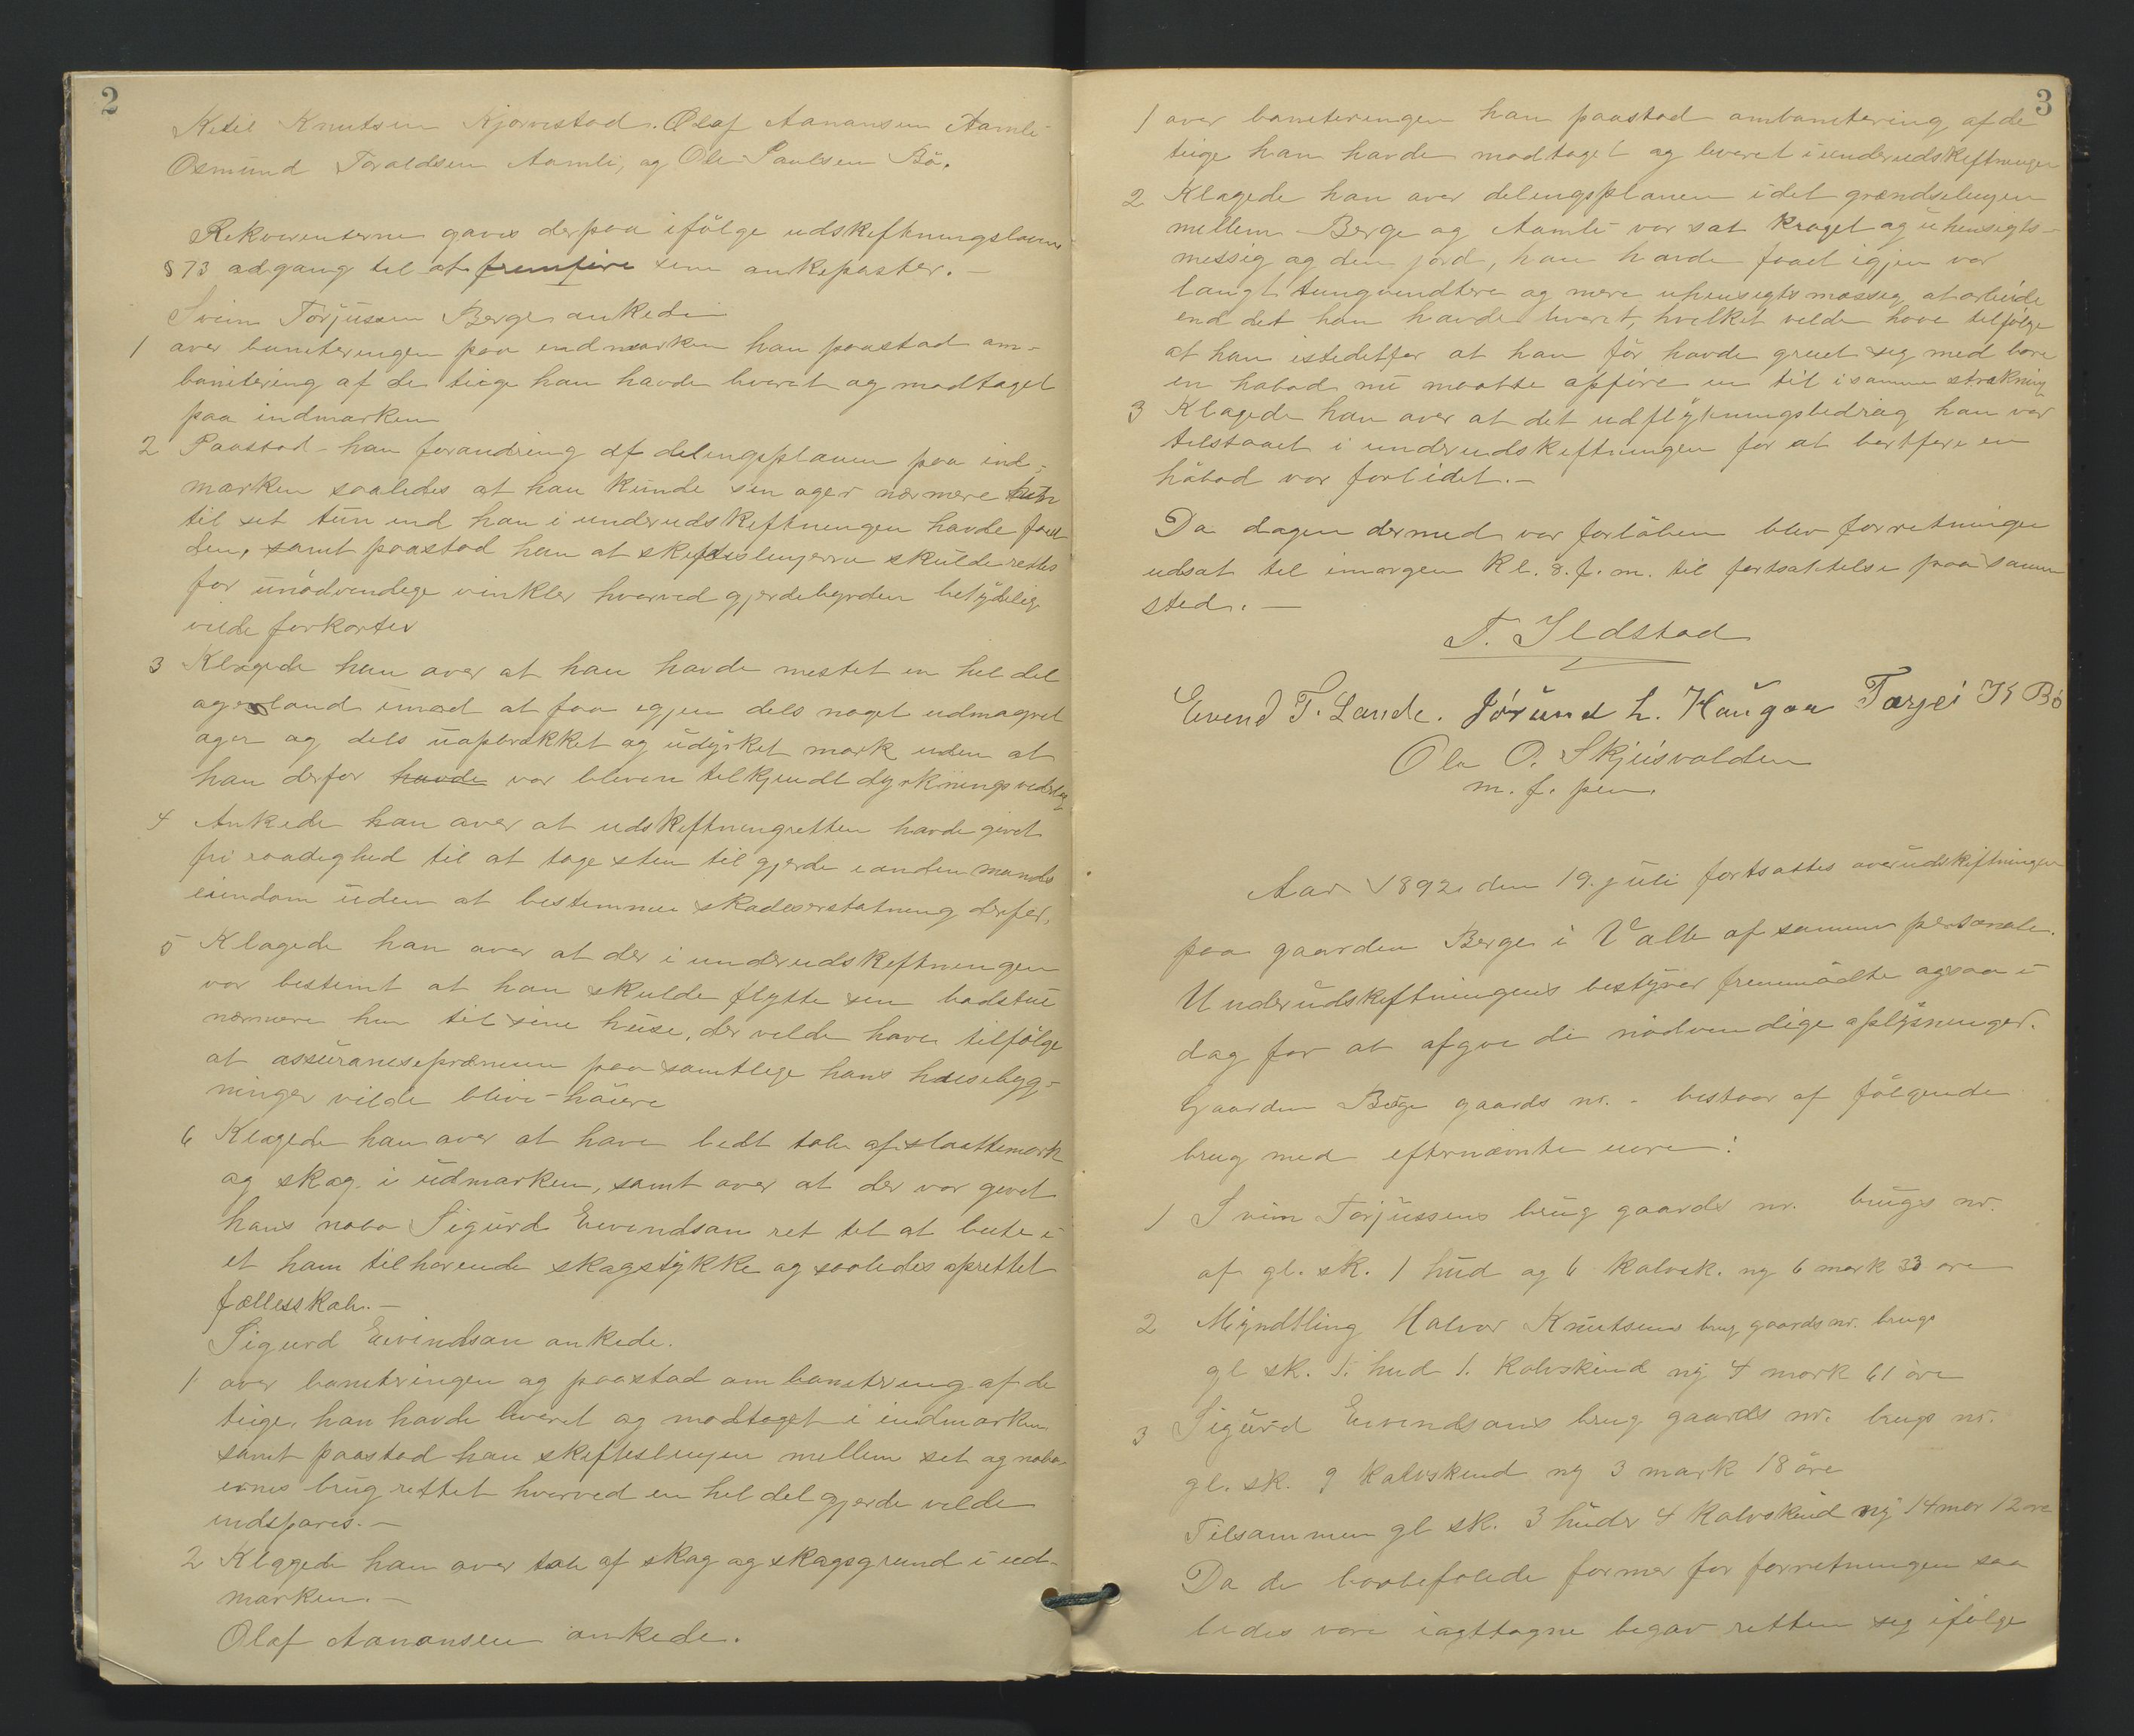 2
Ketil Knutsen Kjørvestad. Olaf Aanansen Aamli
Osmund Taraldsen Aamli, og Ole Paulsen Bö.
Rekvirenterne gaves derpaa ifölge udskiftningslovens
§ 73 adgang til at fremføre sine ankeposter. –
Svein Torjussen Berge ankede
1 over boniteringen paa indmarken han paastod om-
bonitering af de teige han havde leveret og modtaget
paa indmarken
2 Paastod han forandring af delingsplanen paa ind-
marken saaledes at han kunde sin ager nærmere hen
til sit tun end han i underudskiftningen havde faaet
den, samt paastod han at skifteslinjerne skulde rettes
for unödvendige vinkler hvorved gjerdebyrden betydelig
vilde forkortes
3 Klagede han over at han havde mistet en hel del
agerland imod at faa igjen dels noget udmagret
ager og dels uopbrukket og udyrket mark uden at
han derfor havde var bleven tilkjendt dyrkningsvederlag
4 Ankede han over at udskiftningretten havde givet
fri raadighed til at tage sten til gjerde i anden mands
eiendom uden at bestemme skadeserstatning derfor.
5 Klagede han over at der i underudskiftningen
var bestemt at han skulde flytte sin badstue
nærmere hen til sine huse, der vilde have tilfölge
at assurancepræmien paa samtlige hans husebyg-
ninger vilde blive höiere
6 Klagede han over at have lidt tab af slaattemark
og skog i udmarken, samt over at der var givet
hans nabo Sigurd Eivindsøn ret til at beite i
et ham tilhørende skogstykke og saaledes oprettet
fællesskab. –
Sigurd Eivindsøn ankede.
1 over boniteringen og paastod ombonitering af de
teige, han havde leveret og modtaget i indmarken
samt paastod han skifteslinjen mellem sit og nabo-
ernes brug rettet hvorved en hel del gjerde vilde
indspares. –
2 Klagede han over tab af skog og skogsgrund i ud-
marken. –
Olaf Aanonsen ankede.
3
1 over boniteringen han paastod ombonitering af de
teige han havde modtaget og leveret i underudskiftningen
2 Klagede han over delingsplanen idet grændselinjen
mellem Berge og Aamli var sat kroget og uhensigts-
messig og den jord, han havde faaet igjen var
langt tungvendtere og mere uhensigtsmæssig at arbeide
end det han havde leveret, hvilket vilde have tilfölge
at han istedetfor at han för havde greiet sig med bare
en høbod nu maatte opføre en til i samme strækning
3 Klagede han over at det udflytningsbedrag han var
tilstaaet i underudskiftningen for at bortføre en
höbod var forlidet. –
Da dagen dermed var forlöben blev forretningen
udsat til imorgen kl. 8. f. m. til fortsættelse paa samme
sted. –
T. Ildstad
Eivend T. Lande. Jörund L. Haugaa Tarjei K Bö
Ole O. Skjeisvolden
m. f. pen.
Aar 1892 den 19. juli fortsattes overudskiftningen
paa gaarden Berge i Valle af samme personale.
Underudskiftningens bestyrer fremmödte ogsaa i
dag for at afgive de nödvendige oplysninger.
Gaarden Berge gaards nr. - bestaar af fölgende
brug med efternævnte eiere:
1 Svein Torjussens brug gaards nr. brugs nr.
af gl. sk. 1 hud og 6 kalvsk. ny 6 mark 33 øre
2 Myndtling Halvor Knutsens brug gaards nr. brugs
gl sk. 1. hud 1. kalvskind ny 4 mark 61 öre
3 Sigurd Eivindsøns brug gaards nr. brugs nr.
gl. sk. 9 kalvskind ny 3 mark 18 öre
Tilsammen gl sk. 3 huder 4 kalvskind ny 14 mar 12 øre
Da de lovbefalede former for forretningen saa
ledes vare iagttagne begav retten sig ifölge